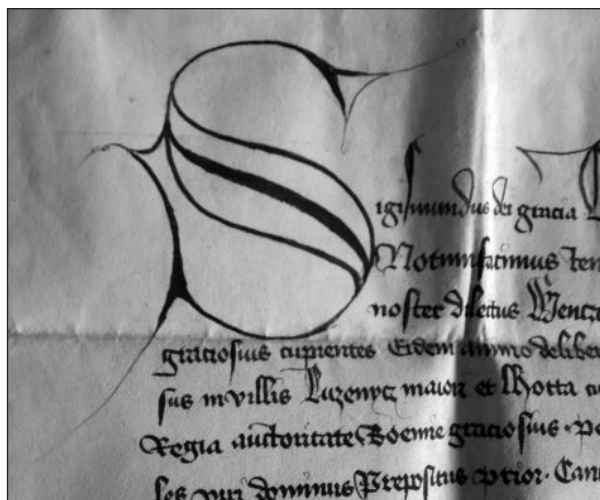 Sigismundus dei gracia
Notumfacimus ten
noster dilectus Wencz
graciosius cupientes Eidem animo deliber
sus in villis Luzenycz maiori et Lhotta
Regia auctoritate Boemie graciosius
les viri dominus Prepositus Prior Can